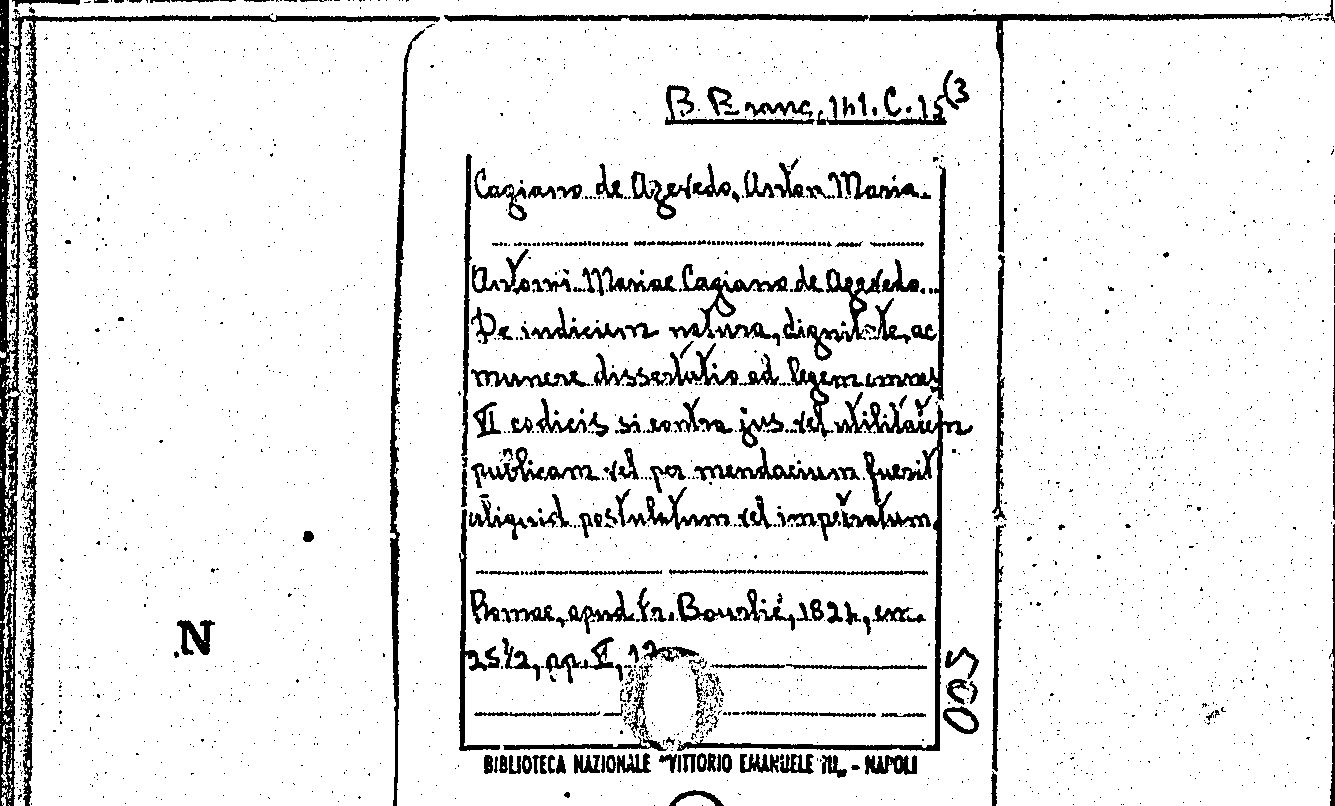 B. Branc. 141. C. 15(3
Cagiano de Azevedo, Anton Maria.
Antonii Mariae Cagiano de Azevedo...
De indicium natura, dignitate, ac
munere dissertatio ad legem omnes
VI codicis si contra jus vel utilitatem
publicam vel per mendacium fuerit
aliquid postulatum vel impetratum.
Romae, apud Fr. Bourlié, 1824, cm.
25 1/2, pp. V, 12
005
N
BIBLIOTECA NAZIONALE "VITTORIO EMANUELE III" - NAPOLI